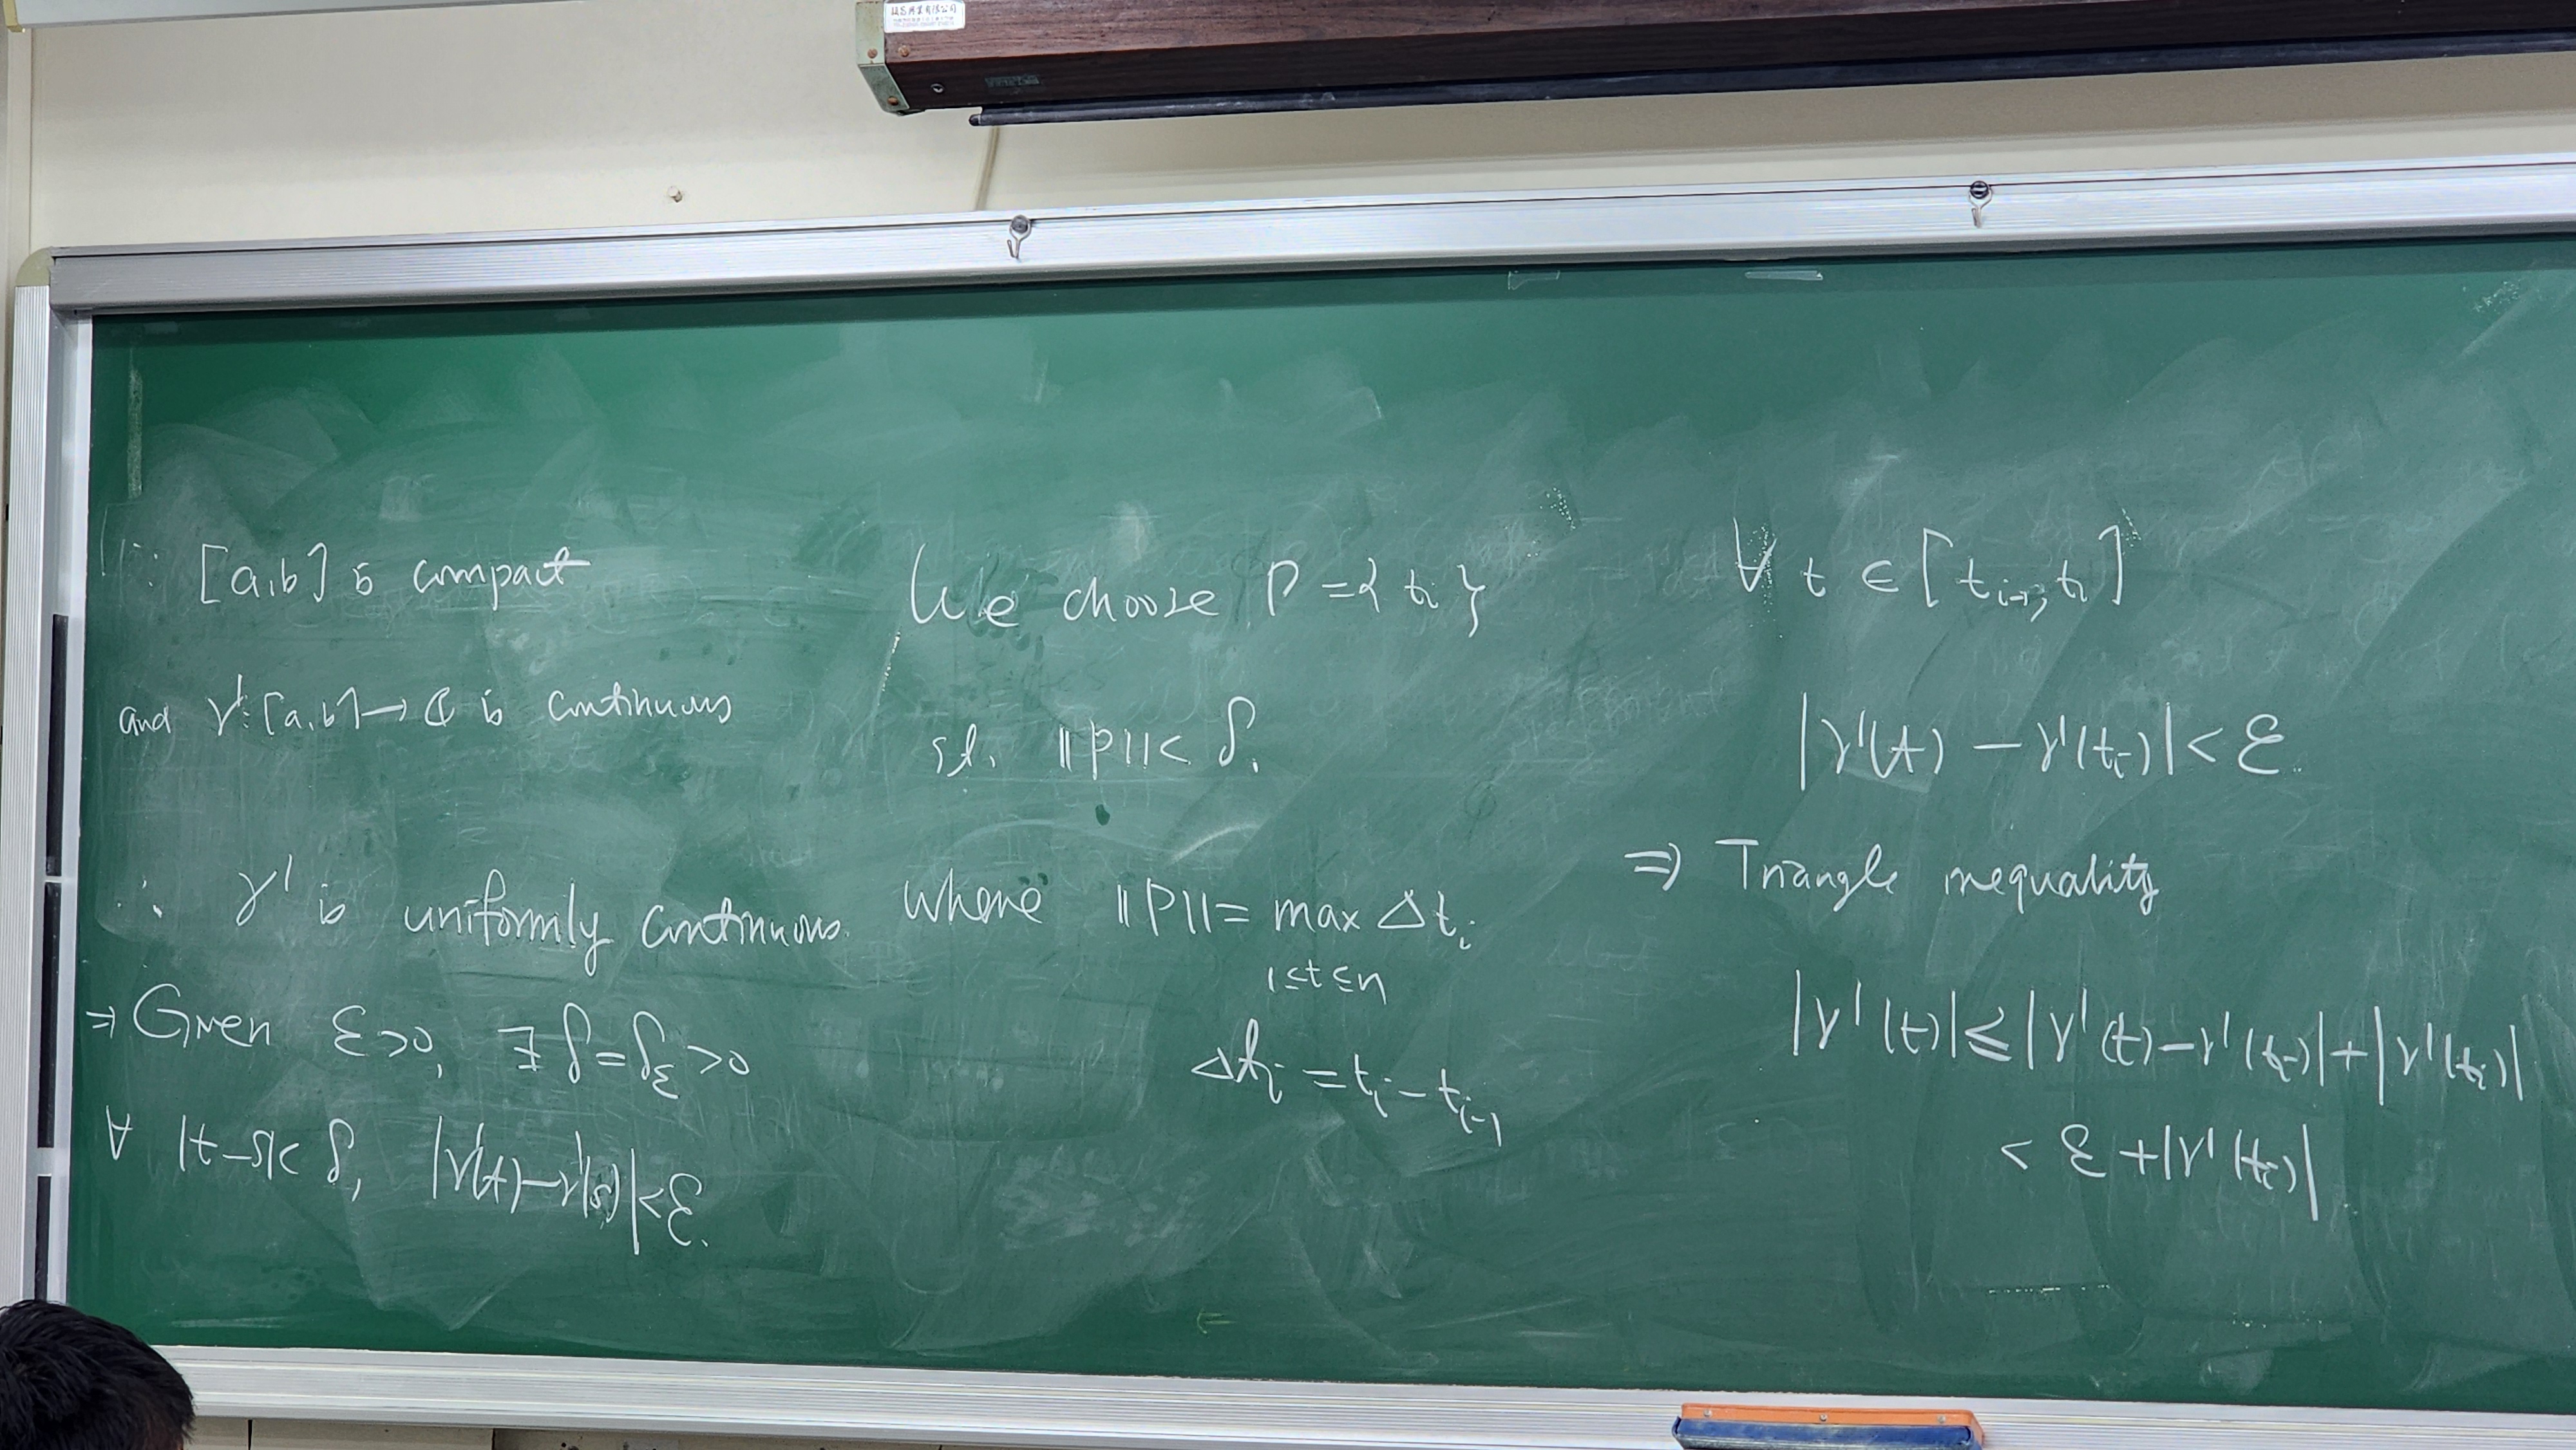 ∵ [a,b] is compact
and γ': [a,b] → ℂ is continuous
∴ γ' is uniformly continuous.
⇒ Given ε>0, ∃ δ=δ_ε >0
∀ |t-s|< δ, |γ'(t)-γ'(s)|<ε.
We choose P = { t_i }
s.t. ||P||< δ.
where ||P||= max Δt_i
1≤t≤n
Δt_i = t_i - t_{i-1}
∀ t ∈ [t_{i-1}, t_i]
|γ'(t) - γ'(t_i)|< ε.
⇒ Triangle inequality
|γ'(t)|≤|γ'(t)-γ'(t_i)|+|γ'(t_i)|
< ε +|γ'(t_i)|